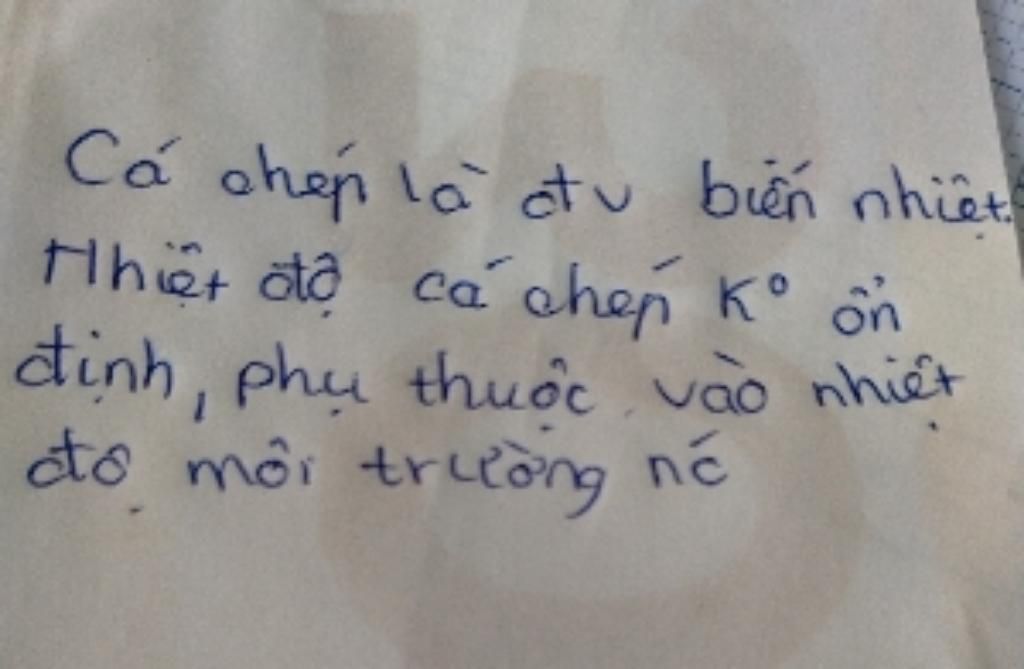 Cá chép là đv biến nhiệt.
Nhiệt độ cá chép K° ổn
định, phụ thuộc vào nhiệt
độ môi trường nc